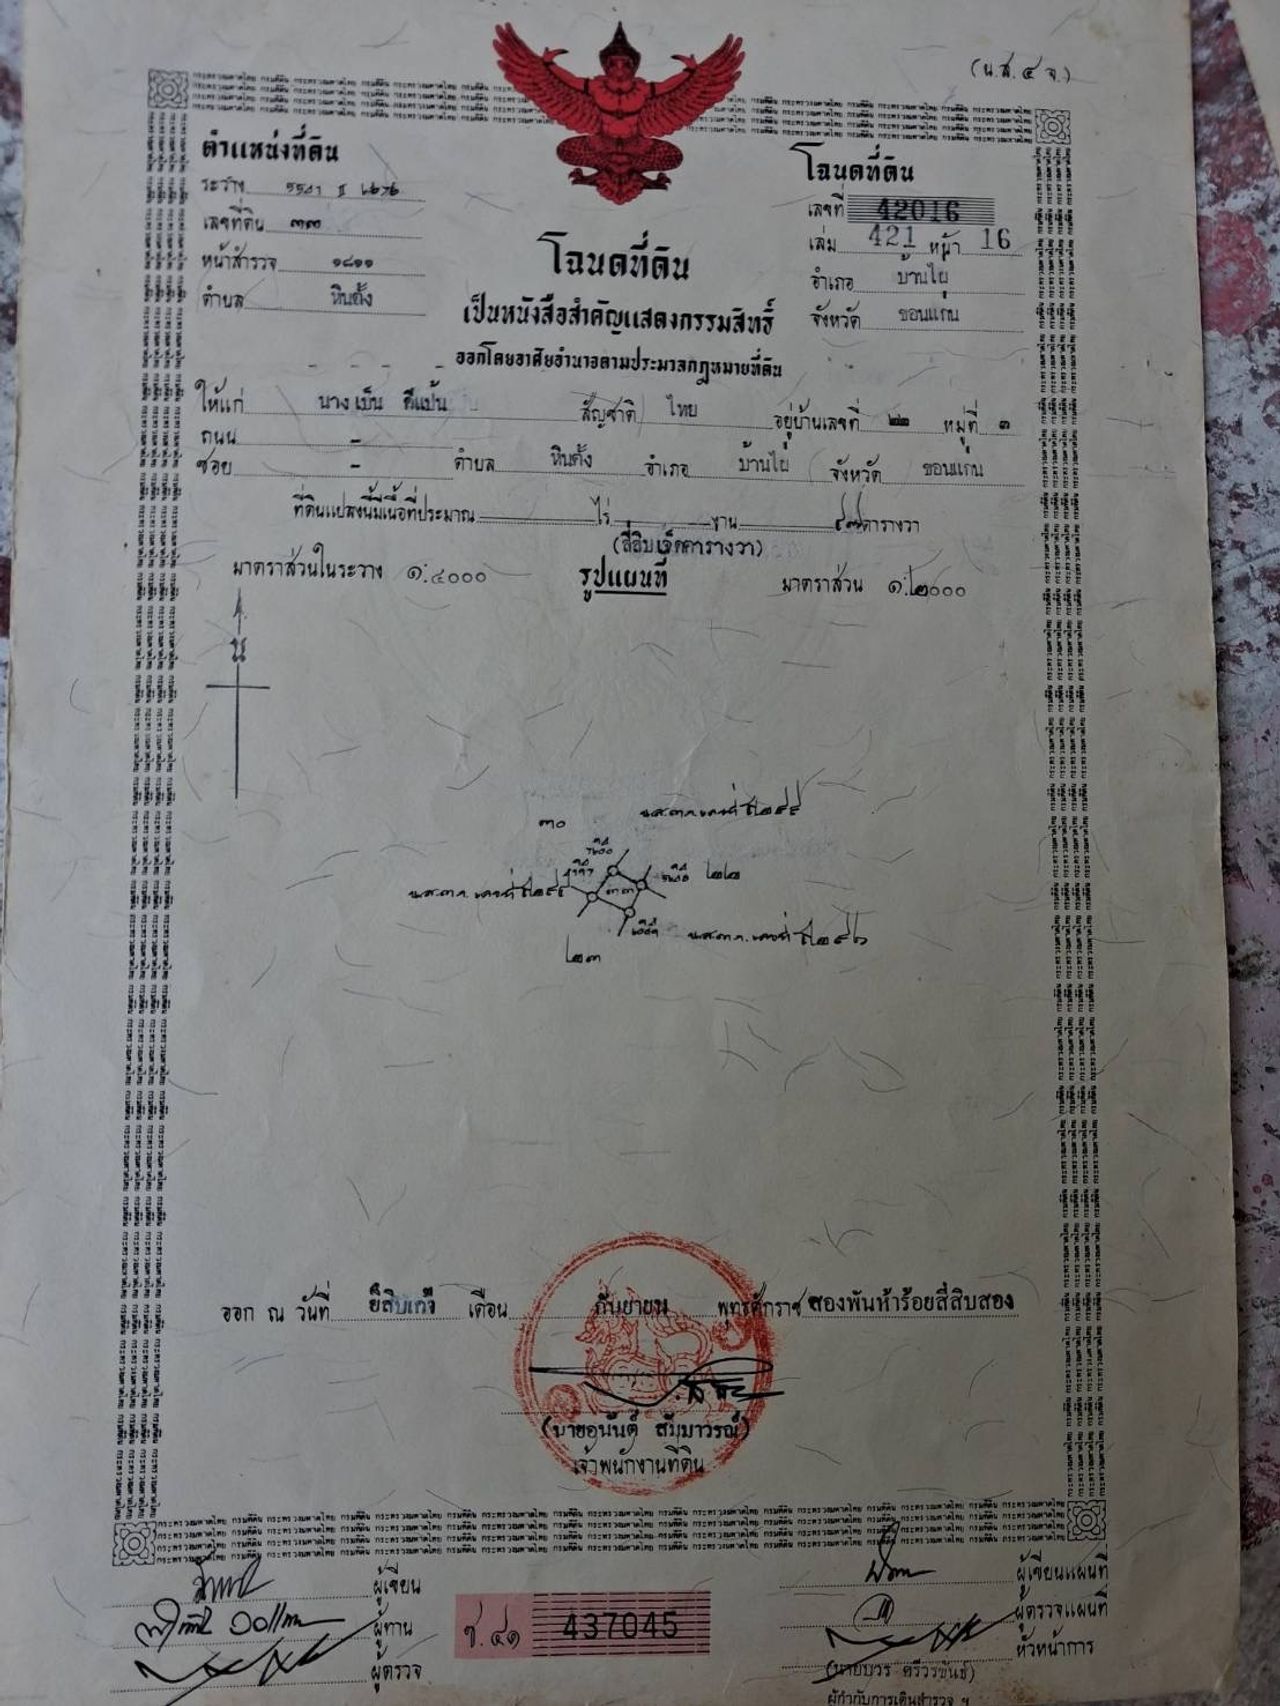 (น.ส. ๔ จ.)
ตำแหน่งที่ดิน
ระวาง
เลขที่ดิน ๓๓
หน้าสำรวจ ๑๘๑๑
ตำบล หินตั้ง
โฉนดที่ดิน
เลขที่ 42016
เล่ม 421 หน้า 16
อำเภอ บ้านไผ่
จังหวัด ขอนแก่น
โฉนดที่ดิน
เป็นหนังสือสำคัญแสดงกรรมสิทธิ์
ออกโดยอาศัยอำนาจตามประมวลกฎหมายที่ดิน
ให้แก่ นางเบ็น ดีแป้น สัญชาติ ไทย อยู่บ้านเลขที่ ๒๒ หมู่ที่ ๓
ถนน -
ซอย - ตำบล หินตั้ง อำเภอ บ้านไผ่ จังหวัด ขอนแก่น
ที่ดินแปลงนี้มีเนื้อที่ประมาณ ไร่ งาน ๔๗ ตารางวา
(สี่สิบเจ็ดตารางวา)
มาตราส่วนในระวาง ๑:๔๐๐๐ รูปแผนที่ มาตราส่วน ๑:๒๐๐๐
น
๓๐
๒๒
๓๓
๒๓
ออก ณ วันที่ ยี่สิบเก้า เดือน กันยายน พุทธศักราช สองพันห้าร้อยสี่สิบสอง
(นายอนันต์ สัมมาวรณ์)
เจ้าพนักงานที่ดิน
ผู้เขียน
ผู้ทาน
ผู้ตรวจ
ช.๔๑ 437045
ผู้เขียนแผนที่
ผู้ตรวจแผนที่
หัวหน้าการ
(นายบวร ศรีวรขันธ์)
ผู้กำกับการเดินสำรวจ ฯ